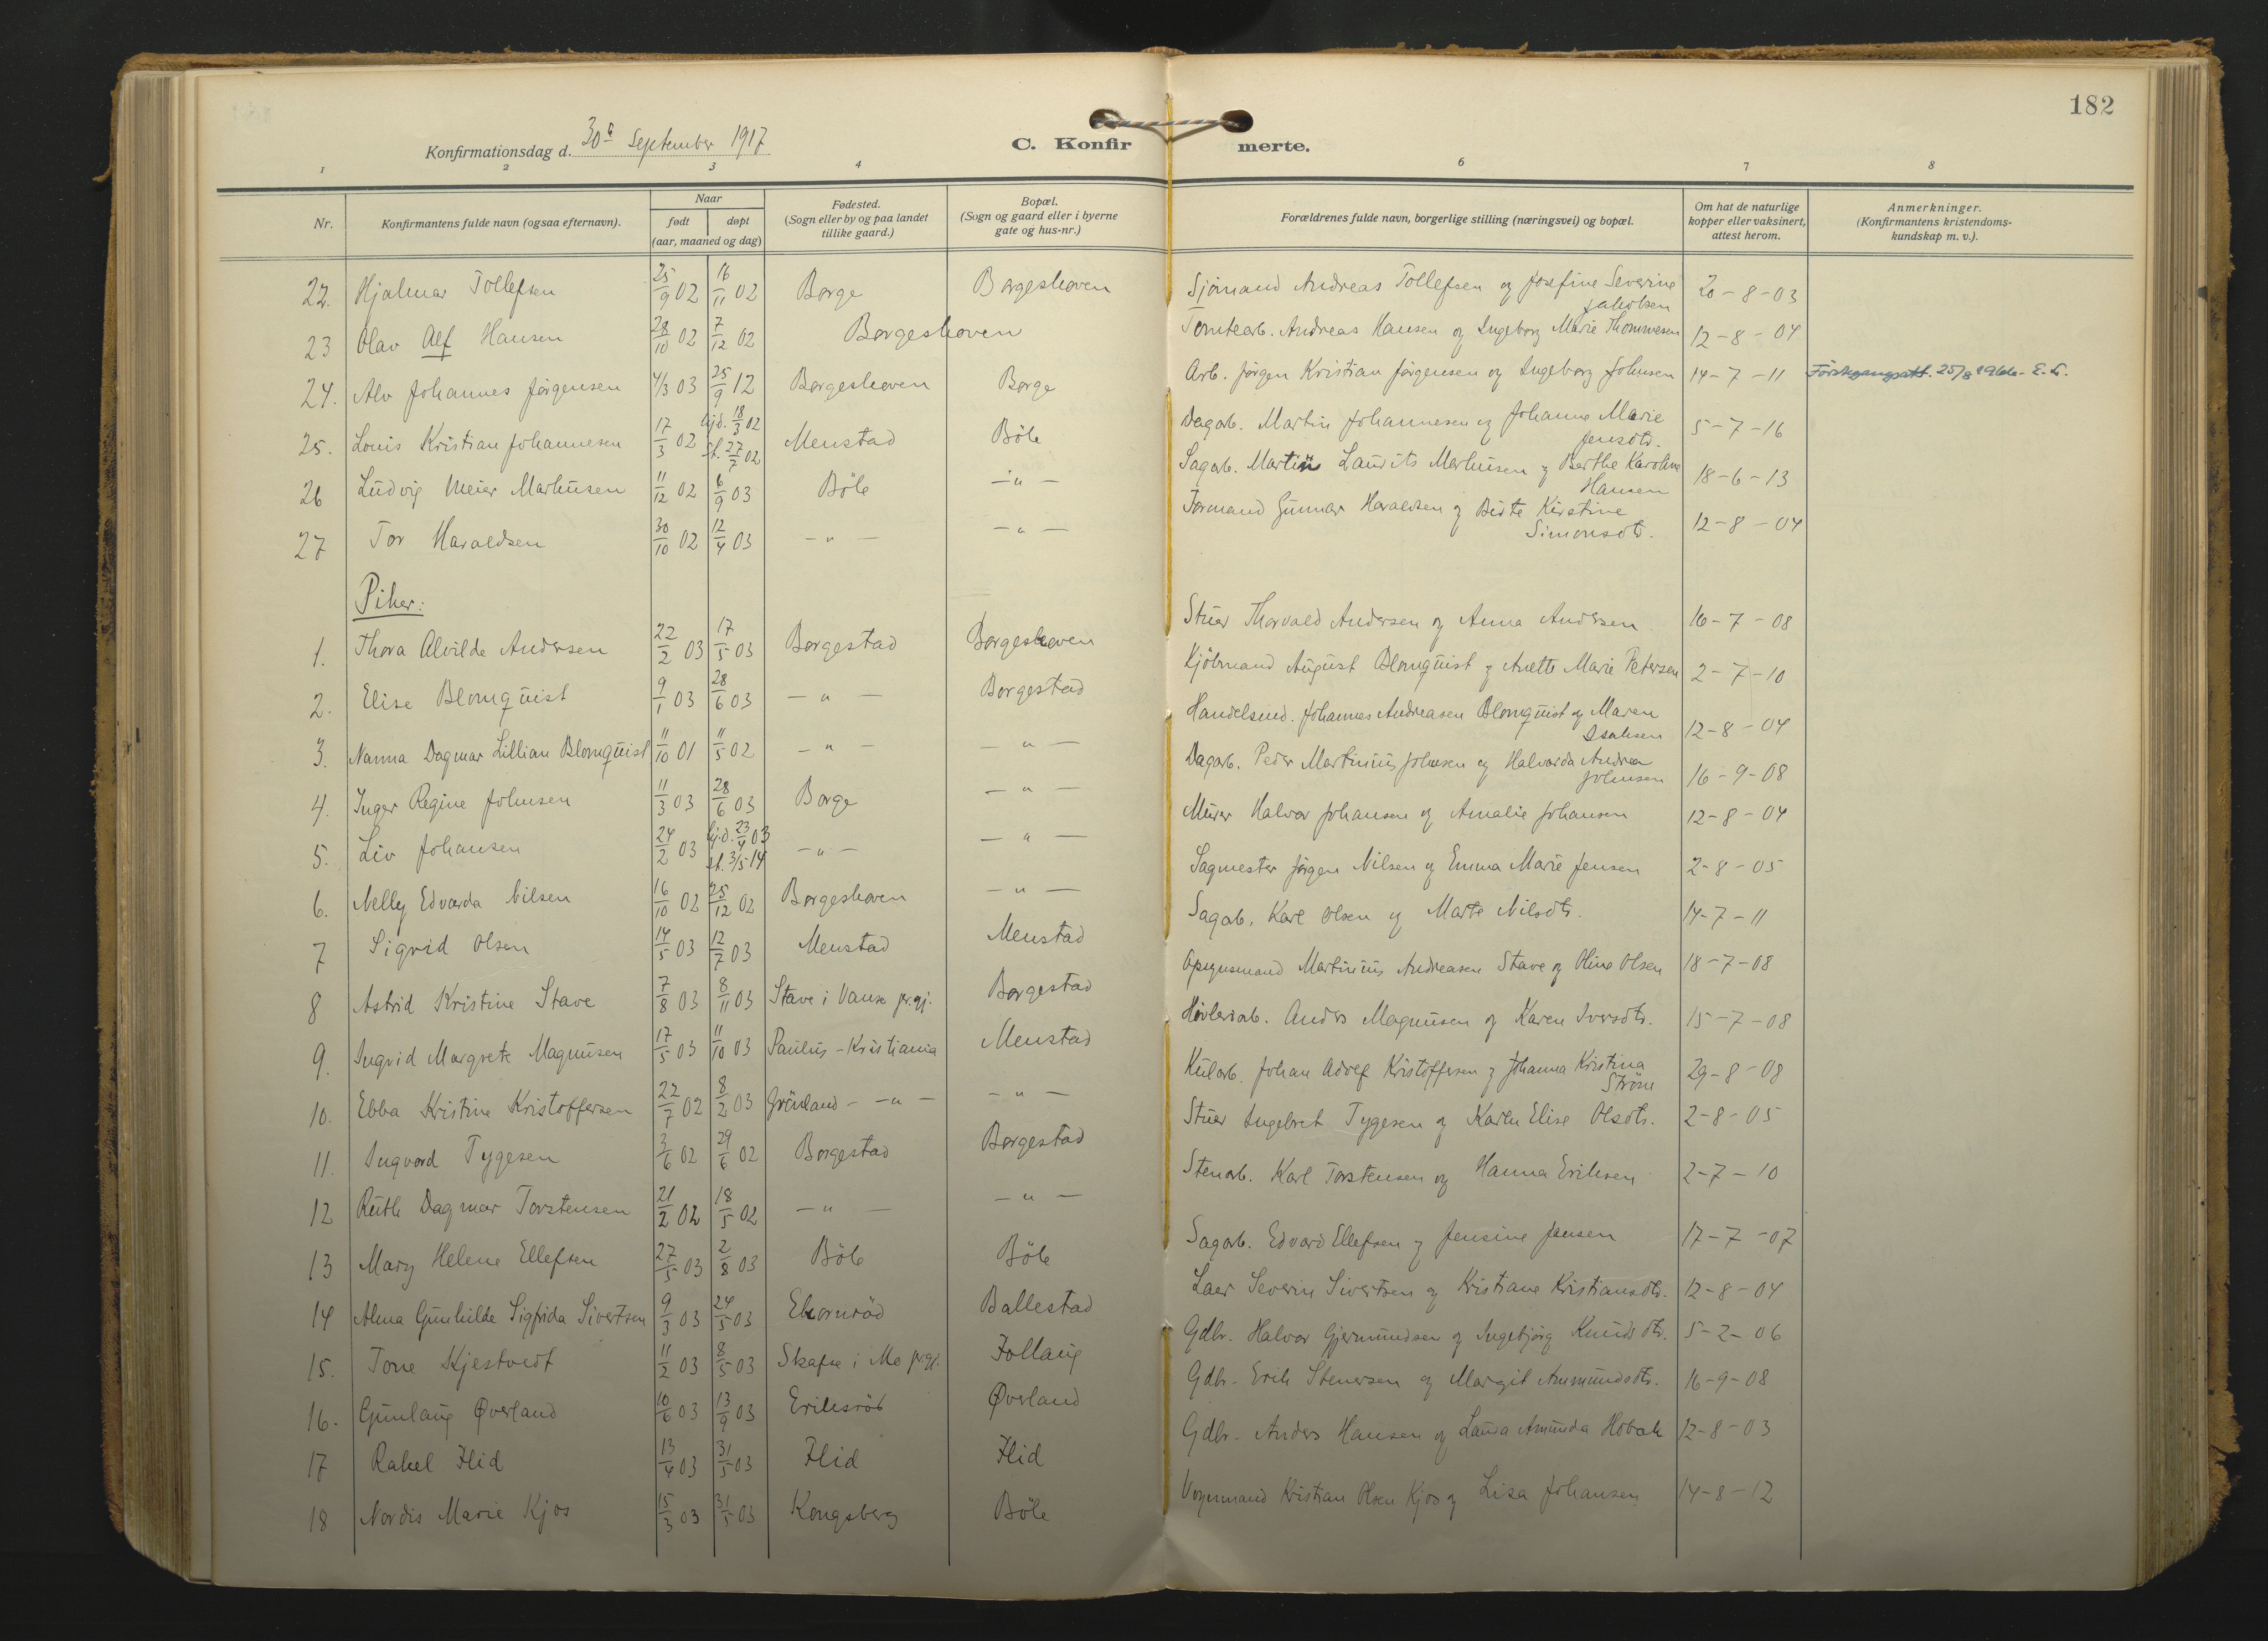 182
Konfirmationsdag d. 30 September 1917
C. Konfirmerte.
1 2 3 4 6 7 8
Nr. Konfirmantens fulde navn (ogsaa efternavn). Naar født døpt (aar, maaned og dag) Fødested. (Sogn eller by og paa landet tillike gaard.) Bopæl. (Sogn og gaard eller i byerne gate og hus-nr.) Forældrenes fulde navn, borgerlige stilling (næringsvei) og bopæl. Om hat de naturlige kopper eller vaksinert, attest herom. Anmerkninger. (Konfirmantens kristendomskundskap m. v.).
22. Hjalmar Tollefsen 25/9 02 16/11 02 Borge Borgeshaven Sjömand Andreas Tollefsen og Josefine Severine Jakobsen 20-8-03
23 Olav Alf Hansen 28/10 02 7/12 02 Borgeshaven Tomtearb. Andreas Hansen og Ingeborg Marie Thommesen 12-8-04
24. Alv Johannes Jørgensen 4/3 03 25/9 12 Borgeshaven Borge Arb. Jørgen Kristian Jørgensen og Ingeborg Johnsen 14-7-11 25/8
25. Louis Kristian Johannesen 17/3 02 hjd. 18/3 02 st. 27/7 02 Menstad Böle Dagarb. Martin Johannesen og Johanne Marie Jensdtr. 5-7-16
26 Ludvig Meier Markusen 11/12 02 6/9 03 Böle -"- Sagarb. Martin Laurits Markusen og Berthe Karoline Hansen 18-6-13
27 Tor Haraldsen 30/10 02 12/4 03 -"- -"- Formand Gunnar Haraldsen og Birte Kirstine Simonsdtr. 12-8-04
Piker:
1. Thora Alvilde Andersen 22/2 03 17/5 03 Borgestad Borgeshaven Stuer Thorvald Andersen og Anna Andersen 16-7-08
2. Elise Blomquist 9/1 03 28/6 03 -"- Borgestad Kjöbmand August Blomquist og Anette Marie Petersen 2-7-10
3. Nanna Dagmar Lillian Blomquist 11/10 01 11/5 02 -"- -"- Handelsmd. Johannes Andreasen Blomquist og Maren Isaksen 12-8-04
4. Inger Regine Johnsen 11/3 03 28/6 03 Borge -"- Dagarb. Peder Martinius Johnsen og Halvarda Andrea Johnsen 16-9-08
5. Liv Johansen 24/2 03 hjd. 23/4 03 st. 3/5 14 -"- -"- Murer Halvor Johansen og Amalie Johansen 12-8-04
6. Nelly Edvarda Nilsen 16/10 02 25/12 02 Borgeshaven -"- Sagmester Jörgen Nilsen og Emma Marie Jensen 2-8-05
7 Sigrid Olsen 14/5 03 12/7 03 Menstad Menstad Sagarb. Karl Olsen og Marte Nilsdtr. 14-7-11
8 Astrid Kristine Stave 7/8 03 8/11 03 Stave i Vanse pr.gj. Borgestad Opsynsmand Martinius Andreasen Stave og Oline Olsen 18-7-08
9. Ingrid Margrete Magnusen 17/5 03 11/10 03 Paulus - Kristiania Menstad Høvleriarb. Anders Magnusen og Karen Iversdtr. 15-7-08
10. Ebba Kristine Kristoffersen 22/7 02 8/2 03 Grönland - -"- -"- Kularb. Johan Adolf Kristoffersen og Johanna Kristina Ström 29-8-08
11. Ingvord Tygesen 3/6 02 29/6 02 Borgestad Borgestad Stuer Ingebret Tygesen og Karen Elise Olsdtr. 2-8-05
12 Ruth Dagmar Torstensen 21/2 02 18/5 02 -"- -"- Stenarb. Karl Torstensen og Hanna Eriksen 2-7-10
13 Mary Helene Ellefsen 27/5 03 2/8 03 Böle Böle Sagarb. Edvard Ellefsen og Jensine Jansen 17-7-07
14 Alma Gunhilde Sigfrida Sivertsen 9/3 03 24/5 03 Ekornröd Ballestad Laer Severin Sivertsen og Kristiane Kristiansdtr. 12-8-04
15. Tone Kjestvedt 11/2 03 8/5 03 Skafse i Mo pr.gj. Follaug Gdbr. Halvor Gjermundsen og Ingebjørg Knudsdtr. 5-2-06
16. Gunlaug Øverland 10/6 03 13/9 03 Eriksröd Øverland Gdbr. Erik Stenersen og Margit Ammundsdtr. 16-9-08
17 Rakel Flid 13/4 03 31/5 03 Flid Flid Gdbr. Anders Hansen og Laura Amunda Hobæk 12-8-03
18 Nordis Marie Kjos 15/3 03 31/5 03 Kongsberg Böle Vognmand Kristian Olsen Kjos og Lisa Johansen 14-8-12